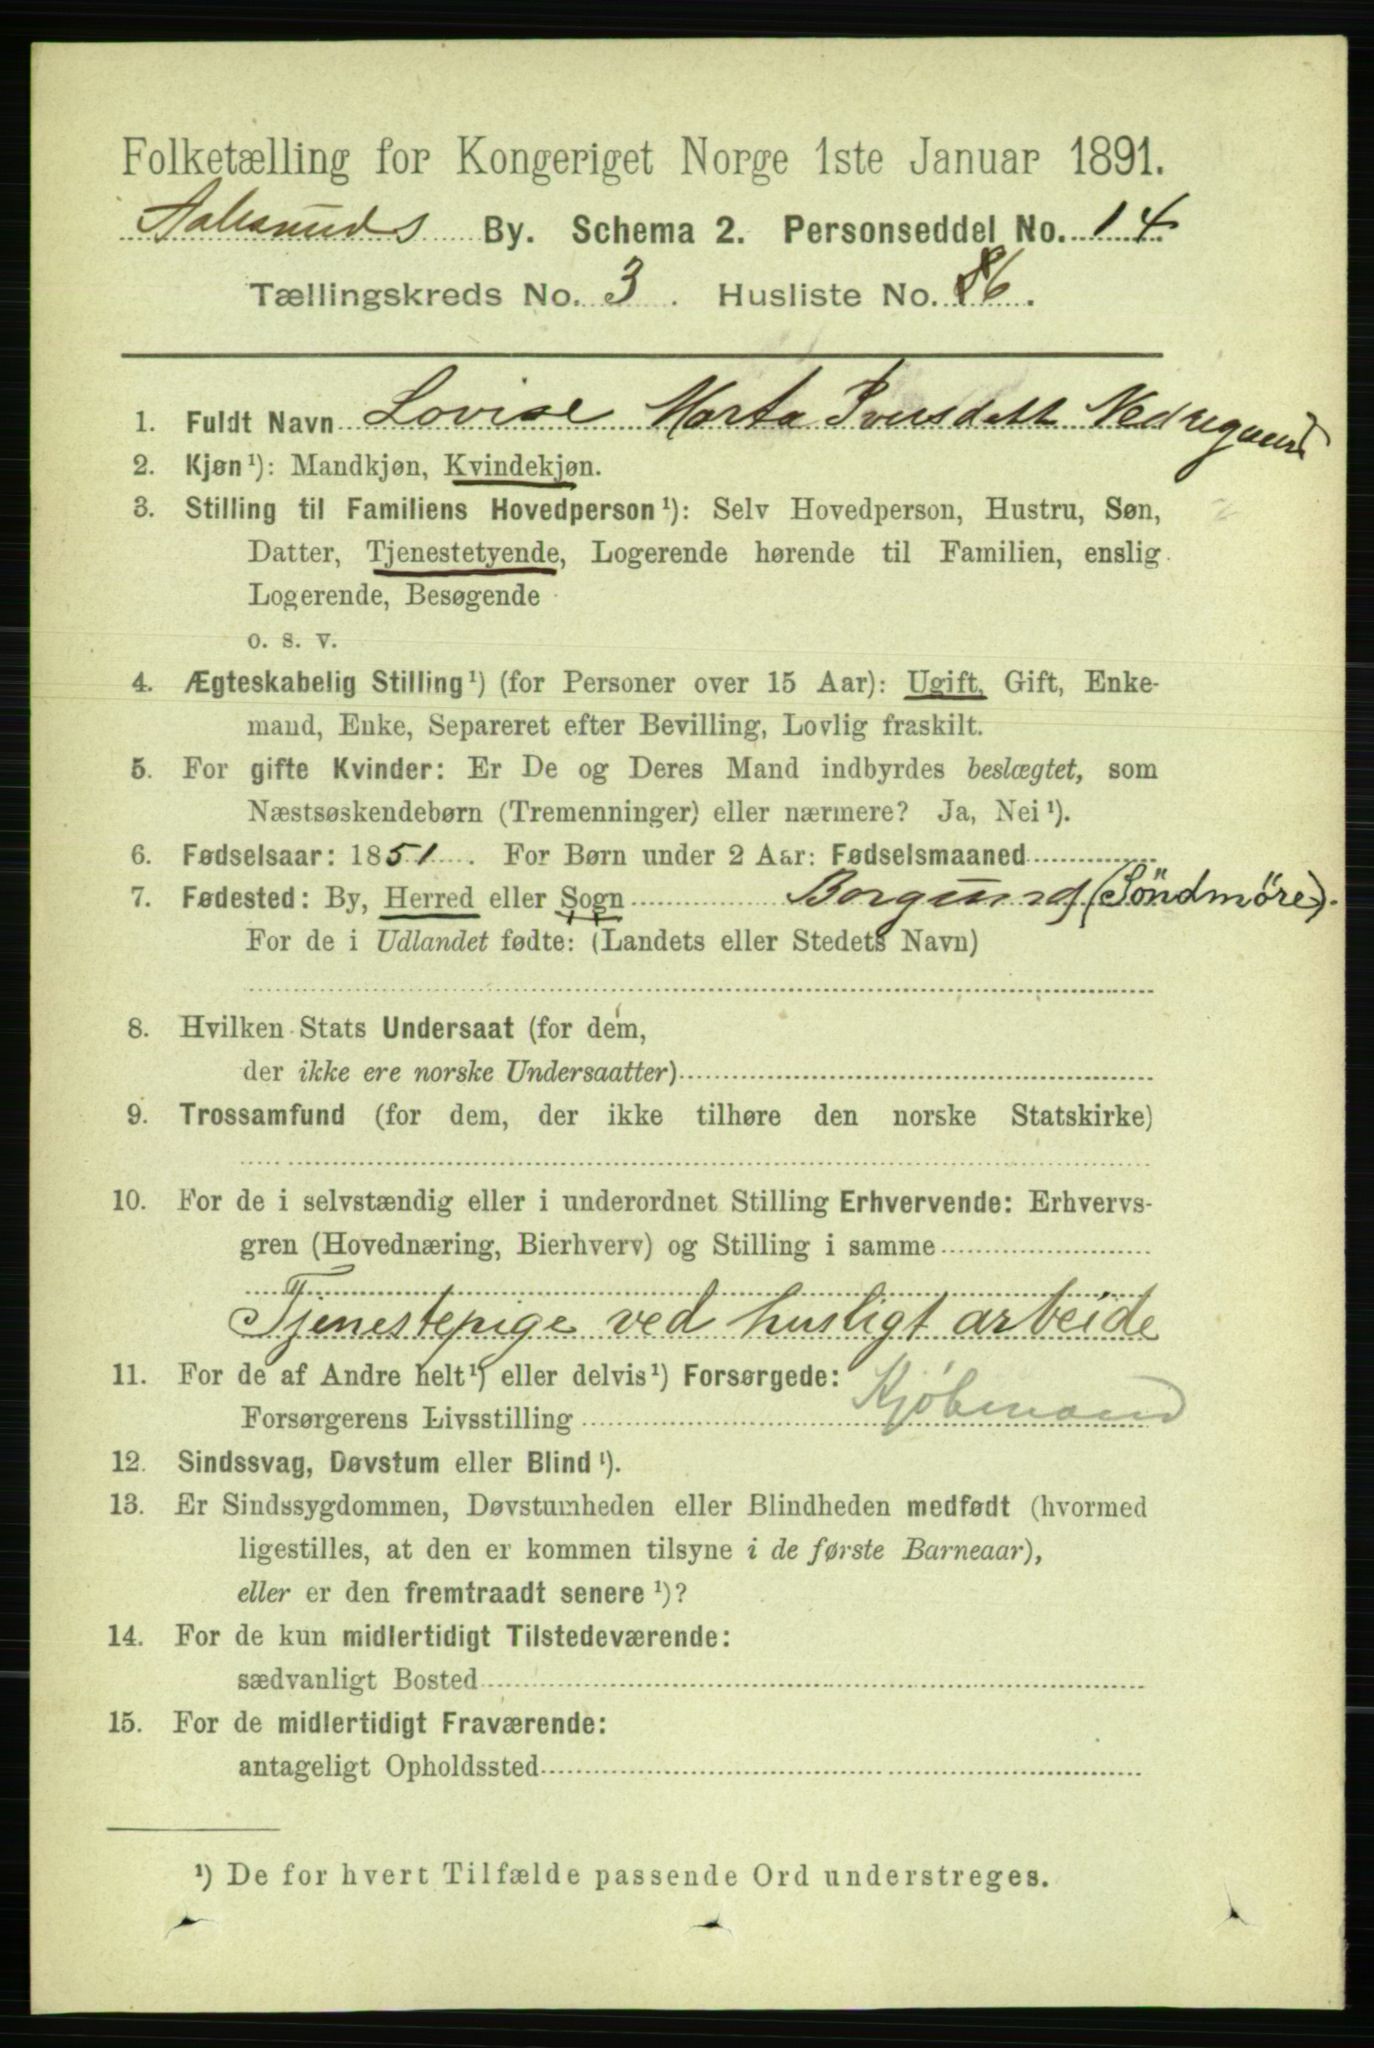 Folketælling for Kongeriget Norge 1ste Januar 1891.
Aalesunds By. Schema 2. Personseddel No. 14
Tællingskreds No. 3. Husliste No. 86.
1. Fuldt Navn Lovise Marta Iversdatt Nedregaard
2. Kjøn¹): Mandkjøn, Kvindekjøn.
3. Stilling til Familiens Hovedperson¹): Selv Hovedperson, Hustru, Søn,
Datter, Tjenestetyende, Logerende hørende til Familien, enslig
Logerende, Besøgende
o. s. v.
4. Ægteskabelig Stilling¹) (for Personer over 15 Aar): Ugift, Gift, Enke-
mand, Enke, Separeret efter Bevilling, Lovlig fraskilt.
5. For gifte Kvinder: Er De og Deres Mand indbyrdes beslægtet, som
Næstsøskendebørn (Tremenninger) eller nærmere? Ja, Nei¹).
6. Fødselsaar: 1851. For Børn under 2 Aar: Fødselsmaaned
7. Fødested: By, Herred eller Sogn Borgund (Söndmöre).
For de i Udlandet fødte: (Landets eller Stedets Navn)
8. Hvilken Stats Undersaat (for dem,
der ikke ere norske Undersaatter)
9. Trossamfund (for dem, der ikke tilhøre den norske Statskirke)
10. For de i selvstændig eller i underordnet Stilling Erhvervende: Erhvervs-
gren (Hovednæring, Bierhverv) og Stilling i samme
Tjenestepige ved husligt arbeide
11. For de af Andre helt¹) eller delvis¹) Forsørgede:
Forsørgerens Livsstilling Kjøbmand
12. Sindssvag, Døvstum eller Blind¹).
13. Er Sindssygdommen, Døvstumheden eller Blindheden medfødt (hvormed
ligestilles, at den er kommen tilsyne i de første Barneaar),
eller er den fremtraadt senere¹)?
14. For de kun midlertidigt Tilstedeværende:
sædvanligt Bosted
15. For de midlertidigt Fraværende:
antageligt Opholdssted
¹) De for hvert Tilfælde passende Ord understreges.